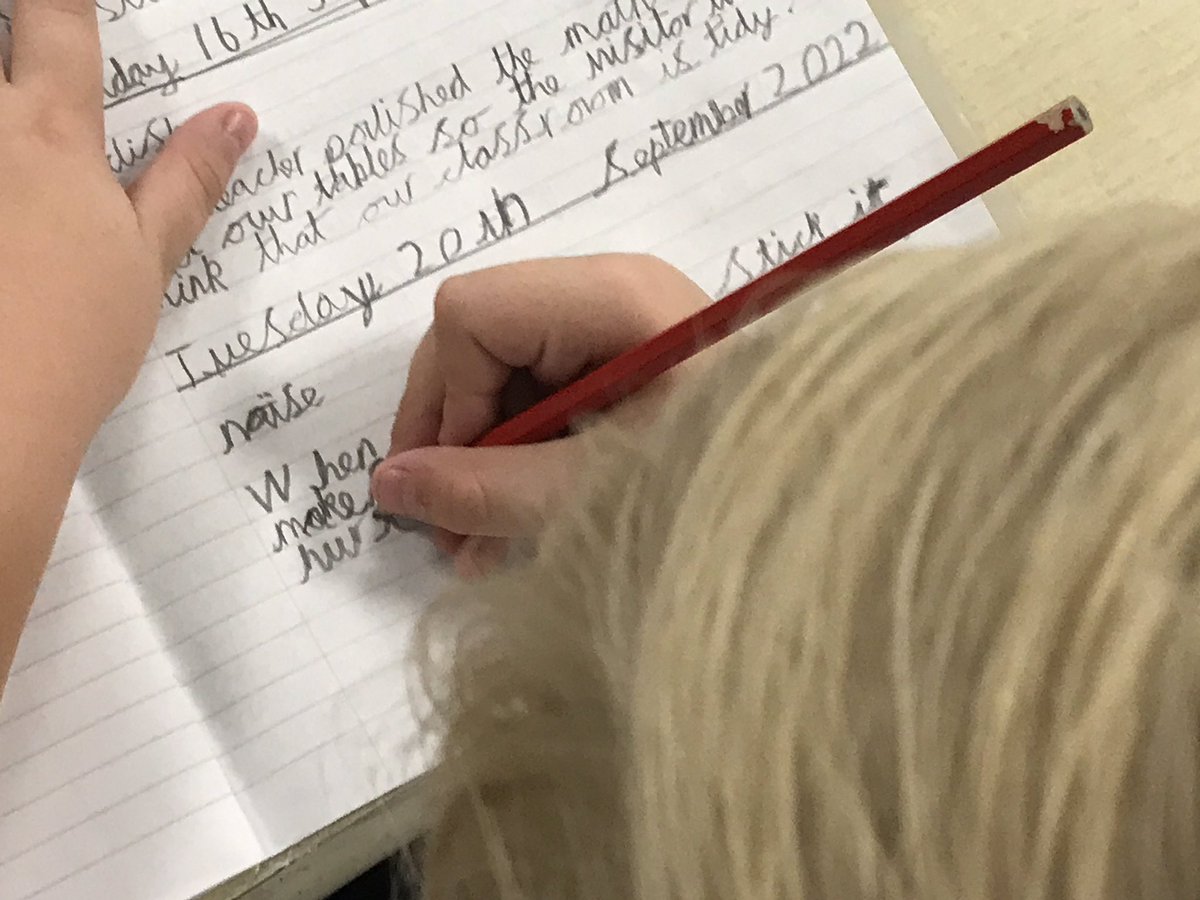 day 16th
eacher polished the math
our tables so the visitor
ink that our classroom is tidy.
Tuesday 20th September 2022
stick it
noise
When
make